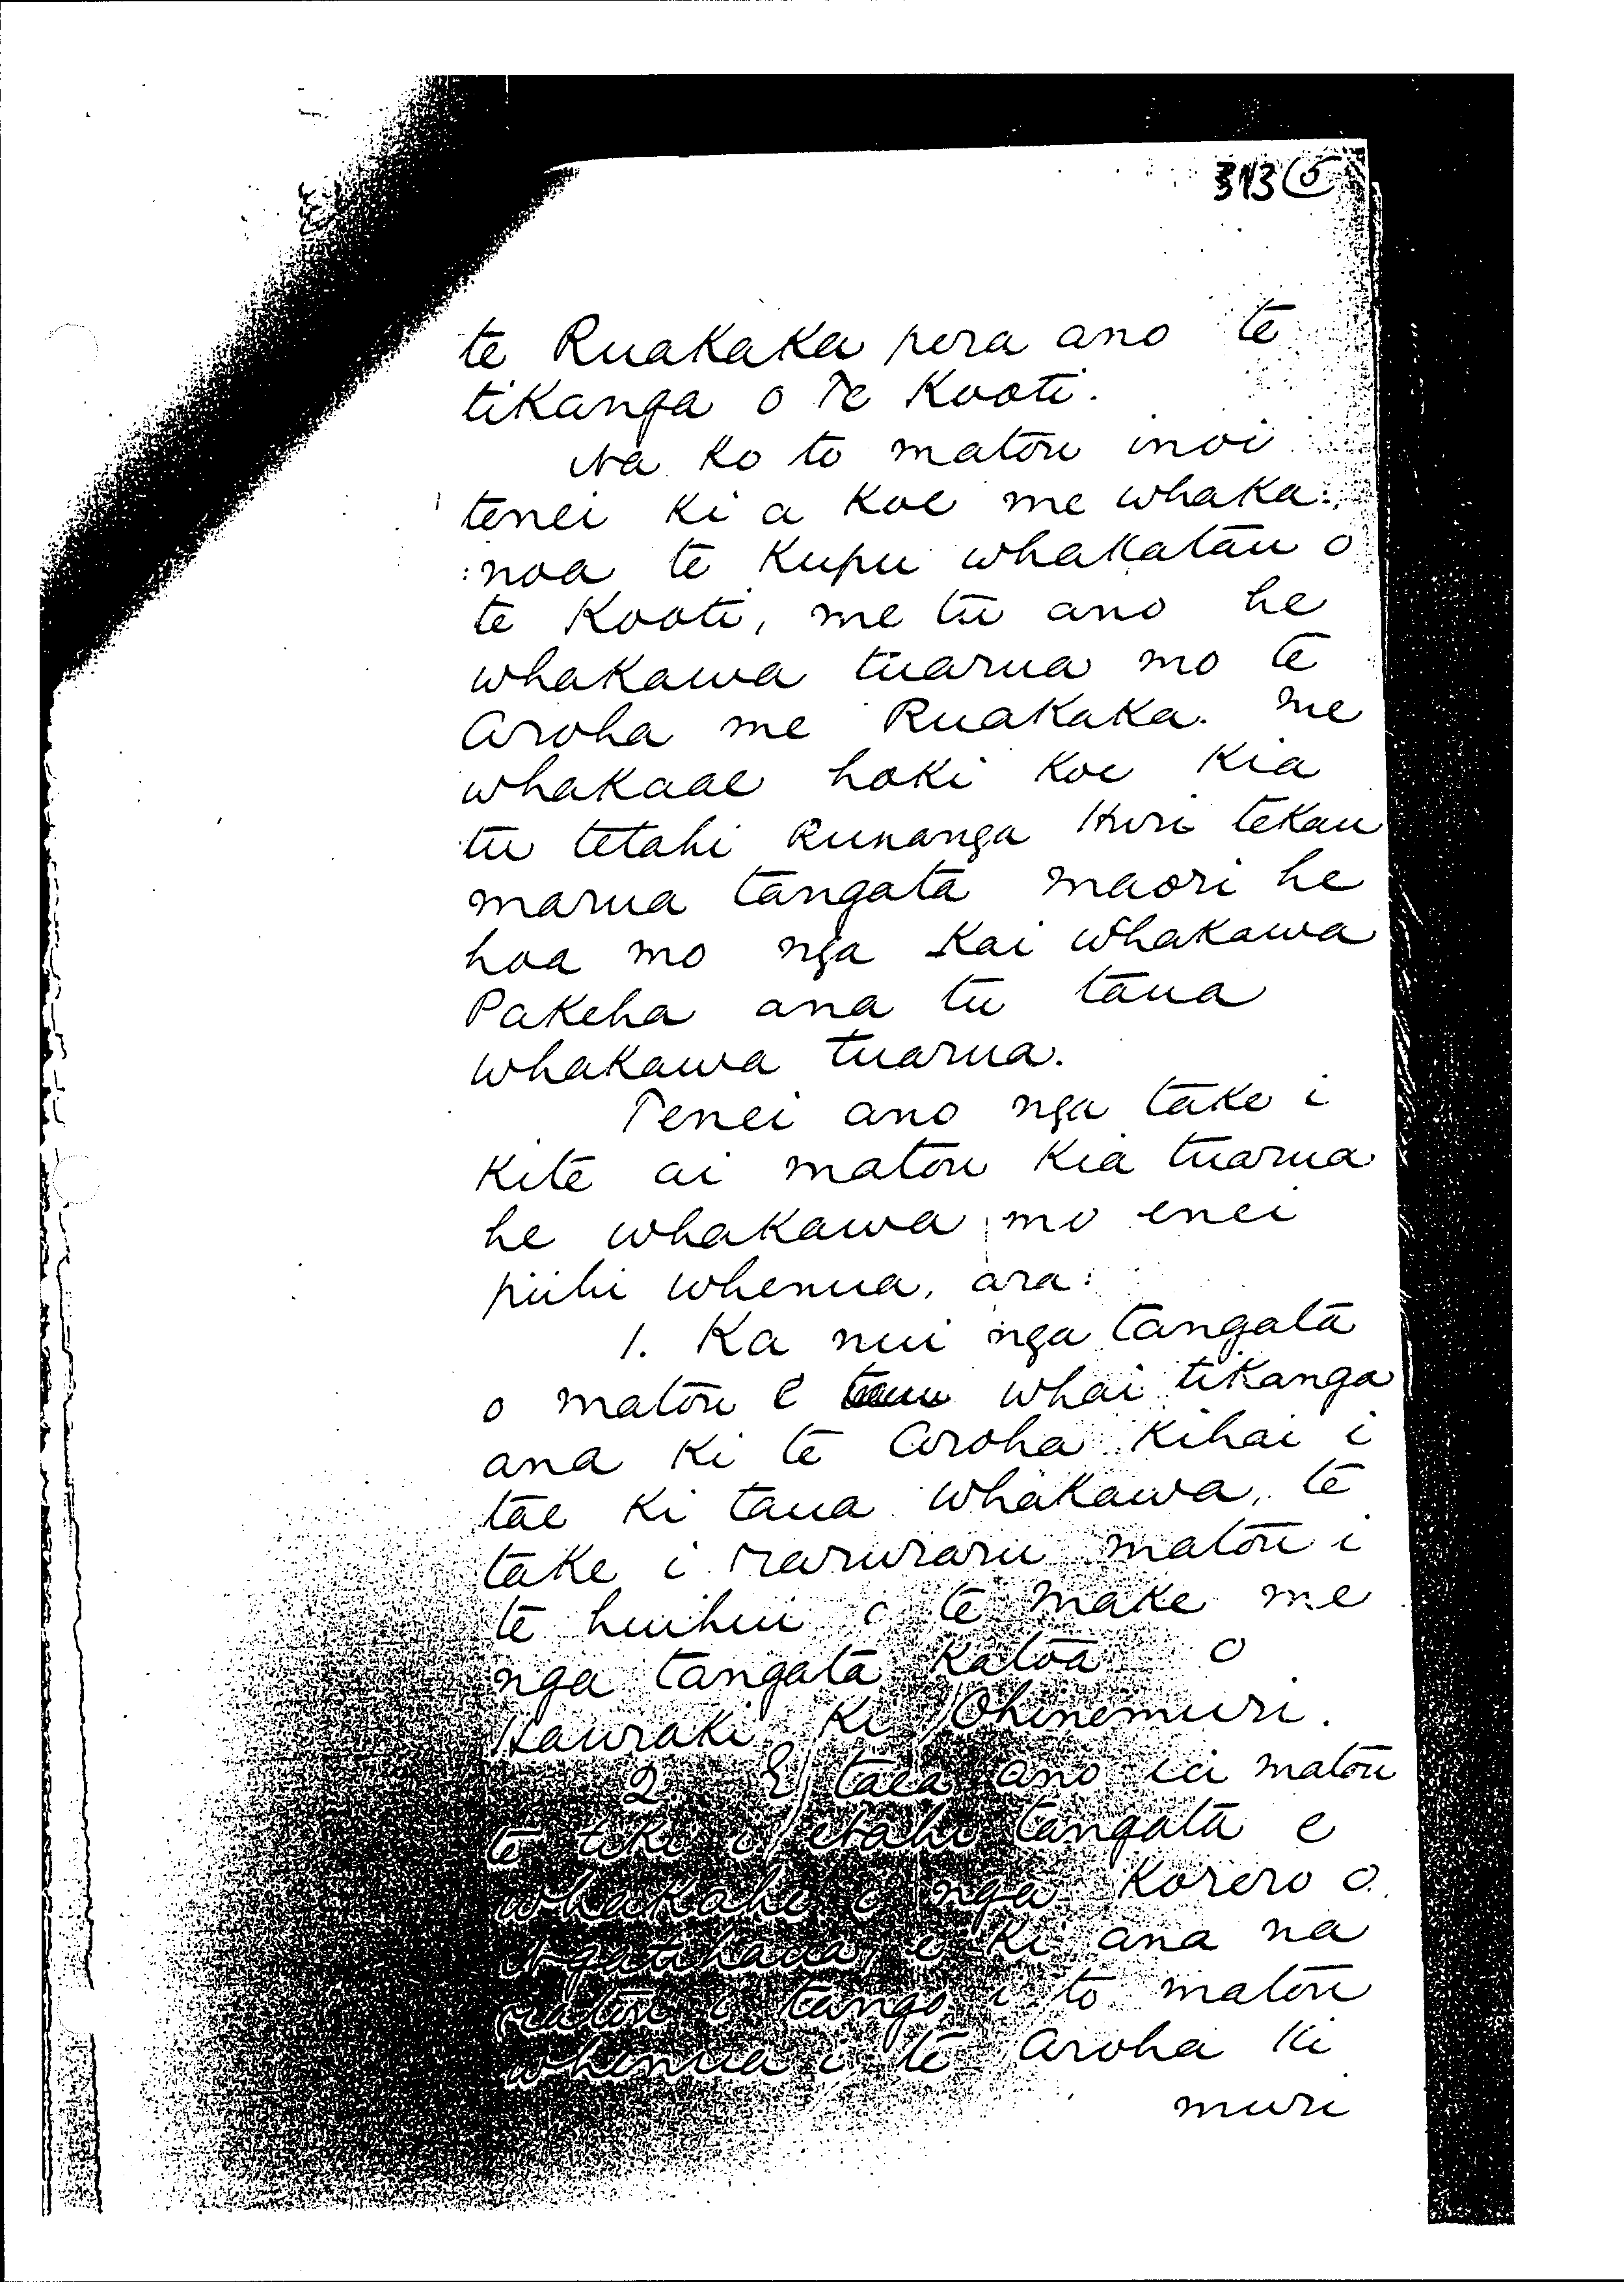 313 5
te Ruakaka pera ano te
tikanga o Te Kooti.
Na ko to matou inoi
tenei ki a koe me whaka:
:noa te kupu whakatau o
te Kooti, me tu ano he
whakawa tuarua mo te
Aroha me Ruakaka. me
whakaae hoki koe kia
tu tetahi Runanga Huri tekau
marua tangata maori he
hoa mo nga Kai whakawa
Pakeha ana tu taua
whakawa tuarua.
Tenei ano nga take i
kite ai matou kia tuarua
he whakawa mo enei
piihi whenua, ara:
1. Ka nui nga tangata
o matou e whai tikanga
ana ki te Aroha kihai i
tae ki taua whakawa, te
take i raruraru matou i
te huihui o te make me
nga tangata katoa o
Hauraki ki Ohinemuri.
2. E taea ano ia matou
te tiki i etahi tangata e
whakahe i nga korero o
Ngatihaua, e ki ana na
ratou i tango i to matou
whenua i te Aroha ki
muri